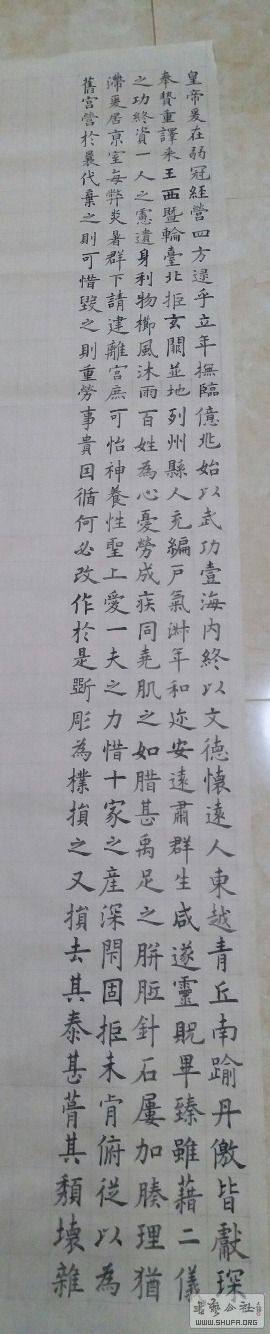 皇帝爰在弱冠經營四方逮乎立年撫臨億兆始以武功壹海內終以文德懷遠人東越青丘南踰丹儌皆獻琛
奉贄重譯来王西暨輪臺北拒玄闕並地列州縣人充編戶氣淋年和迩安遠肅群生咸遂靈貺畢臻雖藉二儀
之功終資一人之憲遺身利物櫛風沐雨百姓為心憂勞成疾同堯肌之如腊甚禹足之胼胝針石屢加腠理猶
滯爰居京室每弊炎暑群下請建離宮庶可怡神養性聖上愛一夫之力惜十家之産深閇固拒未肯俯從以為
舊宮營於曩代棄之則可惜毀之則重勞事貴因循何必改作於是斲彫為樸損之又損去其泰甚葺其頹壞雜
書藝公社
WWW.SHUFA.ORG